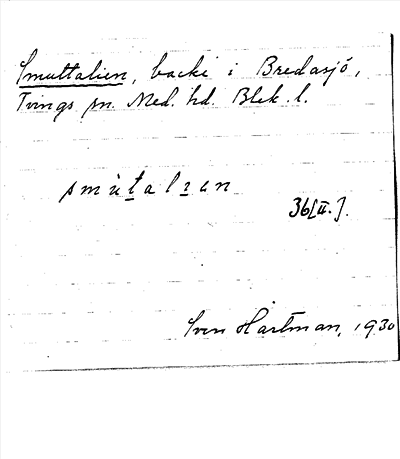 Smuttalien, backe i Bredasjö,
Tvings sn. Med. hd. Blek. l.
smùtalian
36[II.].
Sven Hartman, 1930